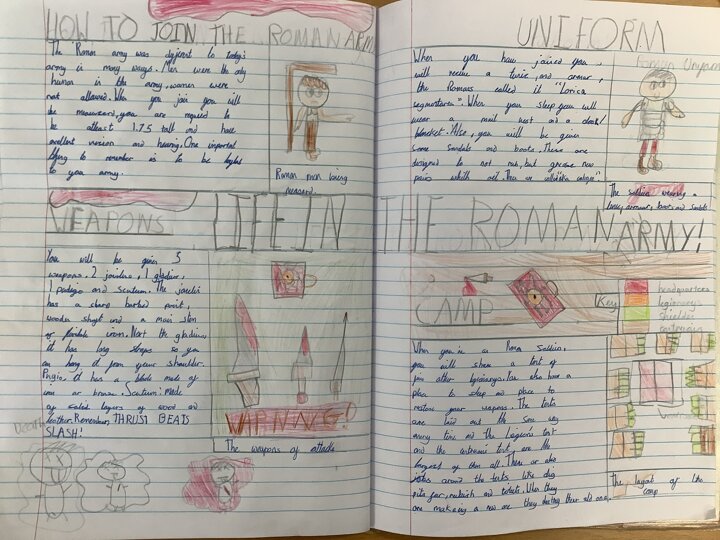 HOW TO JOIN THE ROMAN ARM
The Roman army was diferent to today's
army in many ways. Men were the only
human in the army, women were
not allowed. When you join you will
be measured, you are required to
be atleast 1.75 tall and have
and hearing. One
thing to remember is to be loyal
to you army.
Roman men being
UNIFORM
Roman Uniform
When you have joined you
will receive a tunic, and armor,
the Romans called it "lorica
segmentarea". When you sleep you will
wear a vest and a cloak/
blancket. Also, you will be given
some sandals and boots. These are
designed to not rub, but
pairs
The soldier wearing a
tunic, armour, boots and sandals
LIFE IN THE ROMAN ARMY!
WEAPONS
You will be given 5
weapons. 2 javelins, 1 gladius,
1 and Scutum. The javelin
has a sharp barbed point,
wooden and a
iron. Next the gladius
It has long straps so you
can hang it from your shoulder.
It has a blade made of
or bronze. Scutum: Made
of layers of wood and
leather. Remember, THRUST BEATS
SLASH!
Death
WARNNG!
The weapons of attack
CAMP
Key
headquarters
legionary's
shielder
When you is a Roma Soldier,
you will share a tent of
other You also have a
place to sleep and place to
your weapons. The tents
are laid out the same way
every time and The tent
and the tent are the
largest of them all. There are also
around the tents like
pits for rubbish and toilets. When they
are makeing a new one they destroy their old one.
the layout of the
camp